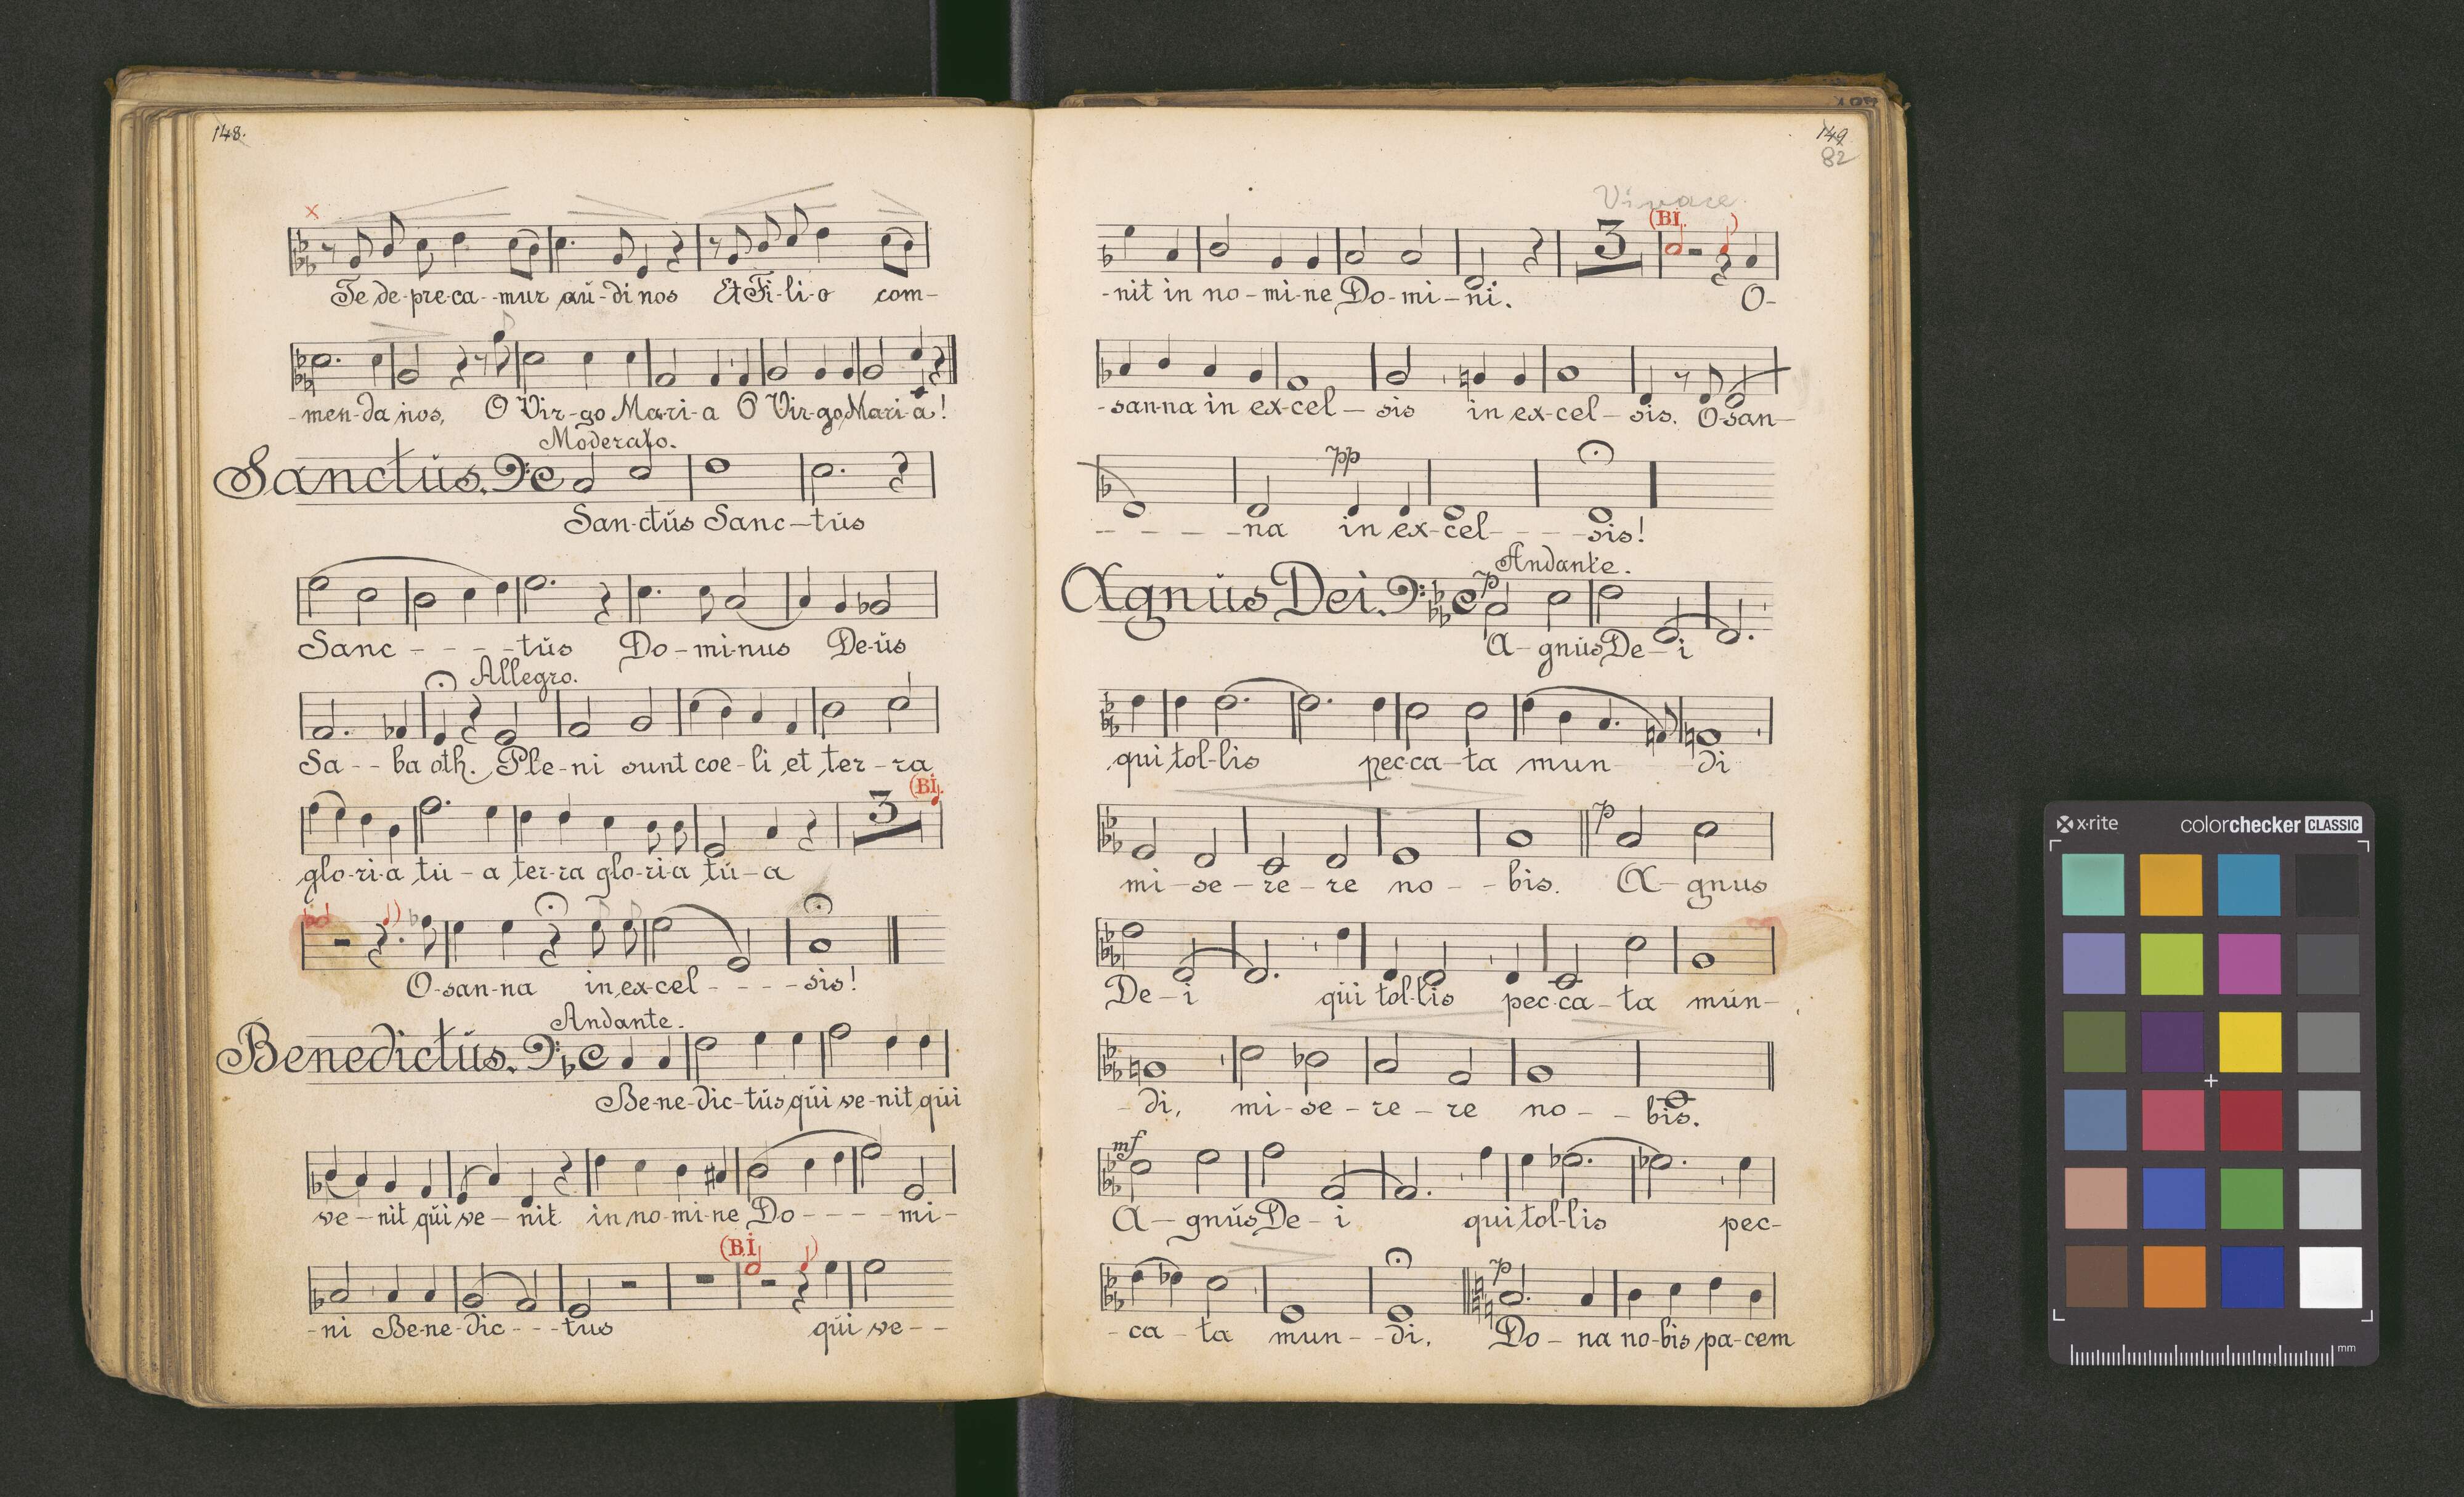 148.
x
Te de-pre-ca--mur aŭ-di nos Et Fi-li-o com-
-men-da nos, O Vir-go Ma-ri-a O Vir-go Mari-a!
Moderato.
Sanctŭs. C
San-ctŭs Sanc-tŭs
Sanc - - - - tŭs Do-mi-nus De-ŭs
Allegro.
Sa--ba oth. Ple-ni sunt coe-li et ter-ra
3 (BI.
glo-ri-a tŭ-a ter-ra glo-ri-a tŭ-a
O-san-na in ex-cel - - - - sis!
Andante.
Benedictŭs. C
Be-ne-dic-tŭs qŭi ve-nit qŭi
ve-nit qŭi ve-nit in no-mi-ne Do - - - - mi-
(B.I )
-ni Be-ne-dic - - - tus qŭi ve--
149
82
Vivace.
3 (BI. )
-nit in no-mi-ne Do-mi-ni. O-
-san-na in ex-cel-sis in ex-cel-sis. O-san-
pp
- - - - -na in ex-cel- - - -sis!
Andante.
Agnŭs Dei. C p
A-gnŭs De-i
qui tol-lis pec-ca-ta mun- -di
p
mi-se-re-re no--bis. A-gnus
De-i qŭi tol-lis pec-ca-ta mŭn-
-di, mi-se-re-re no--bis.
mf
A-gnŭs De-i qui tol-lis pec-
p
-ca-ta mun--di. Do-na no-bis pa-cem
x-rite colorchecker CLASSIC
mm